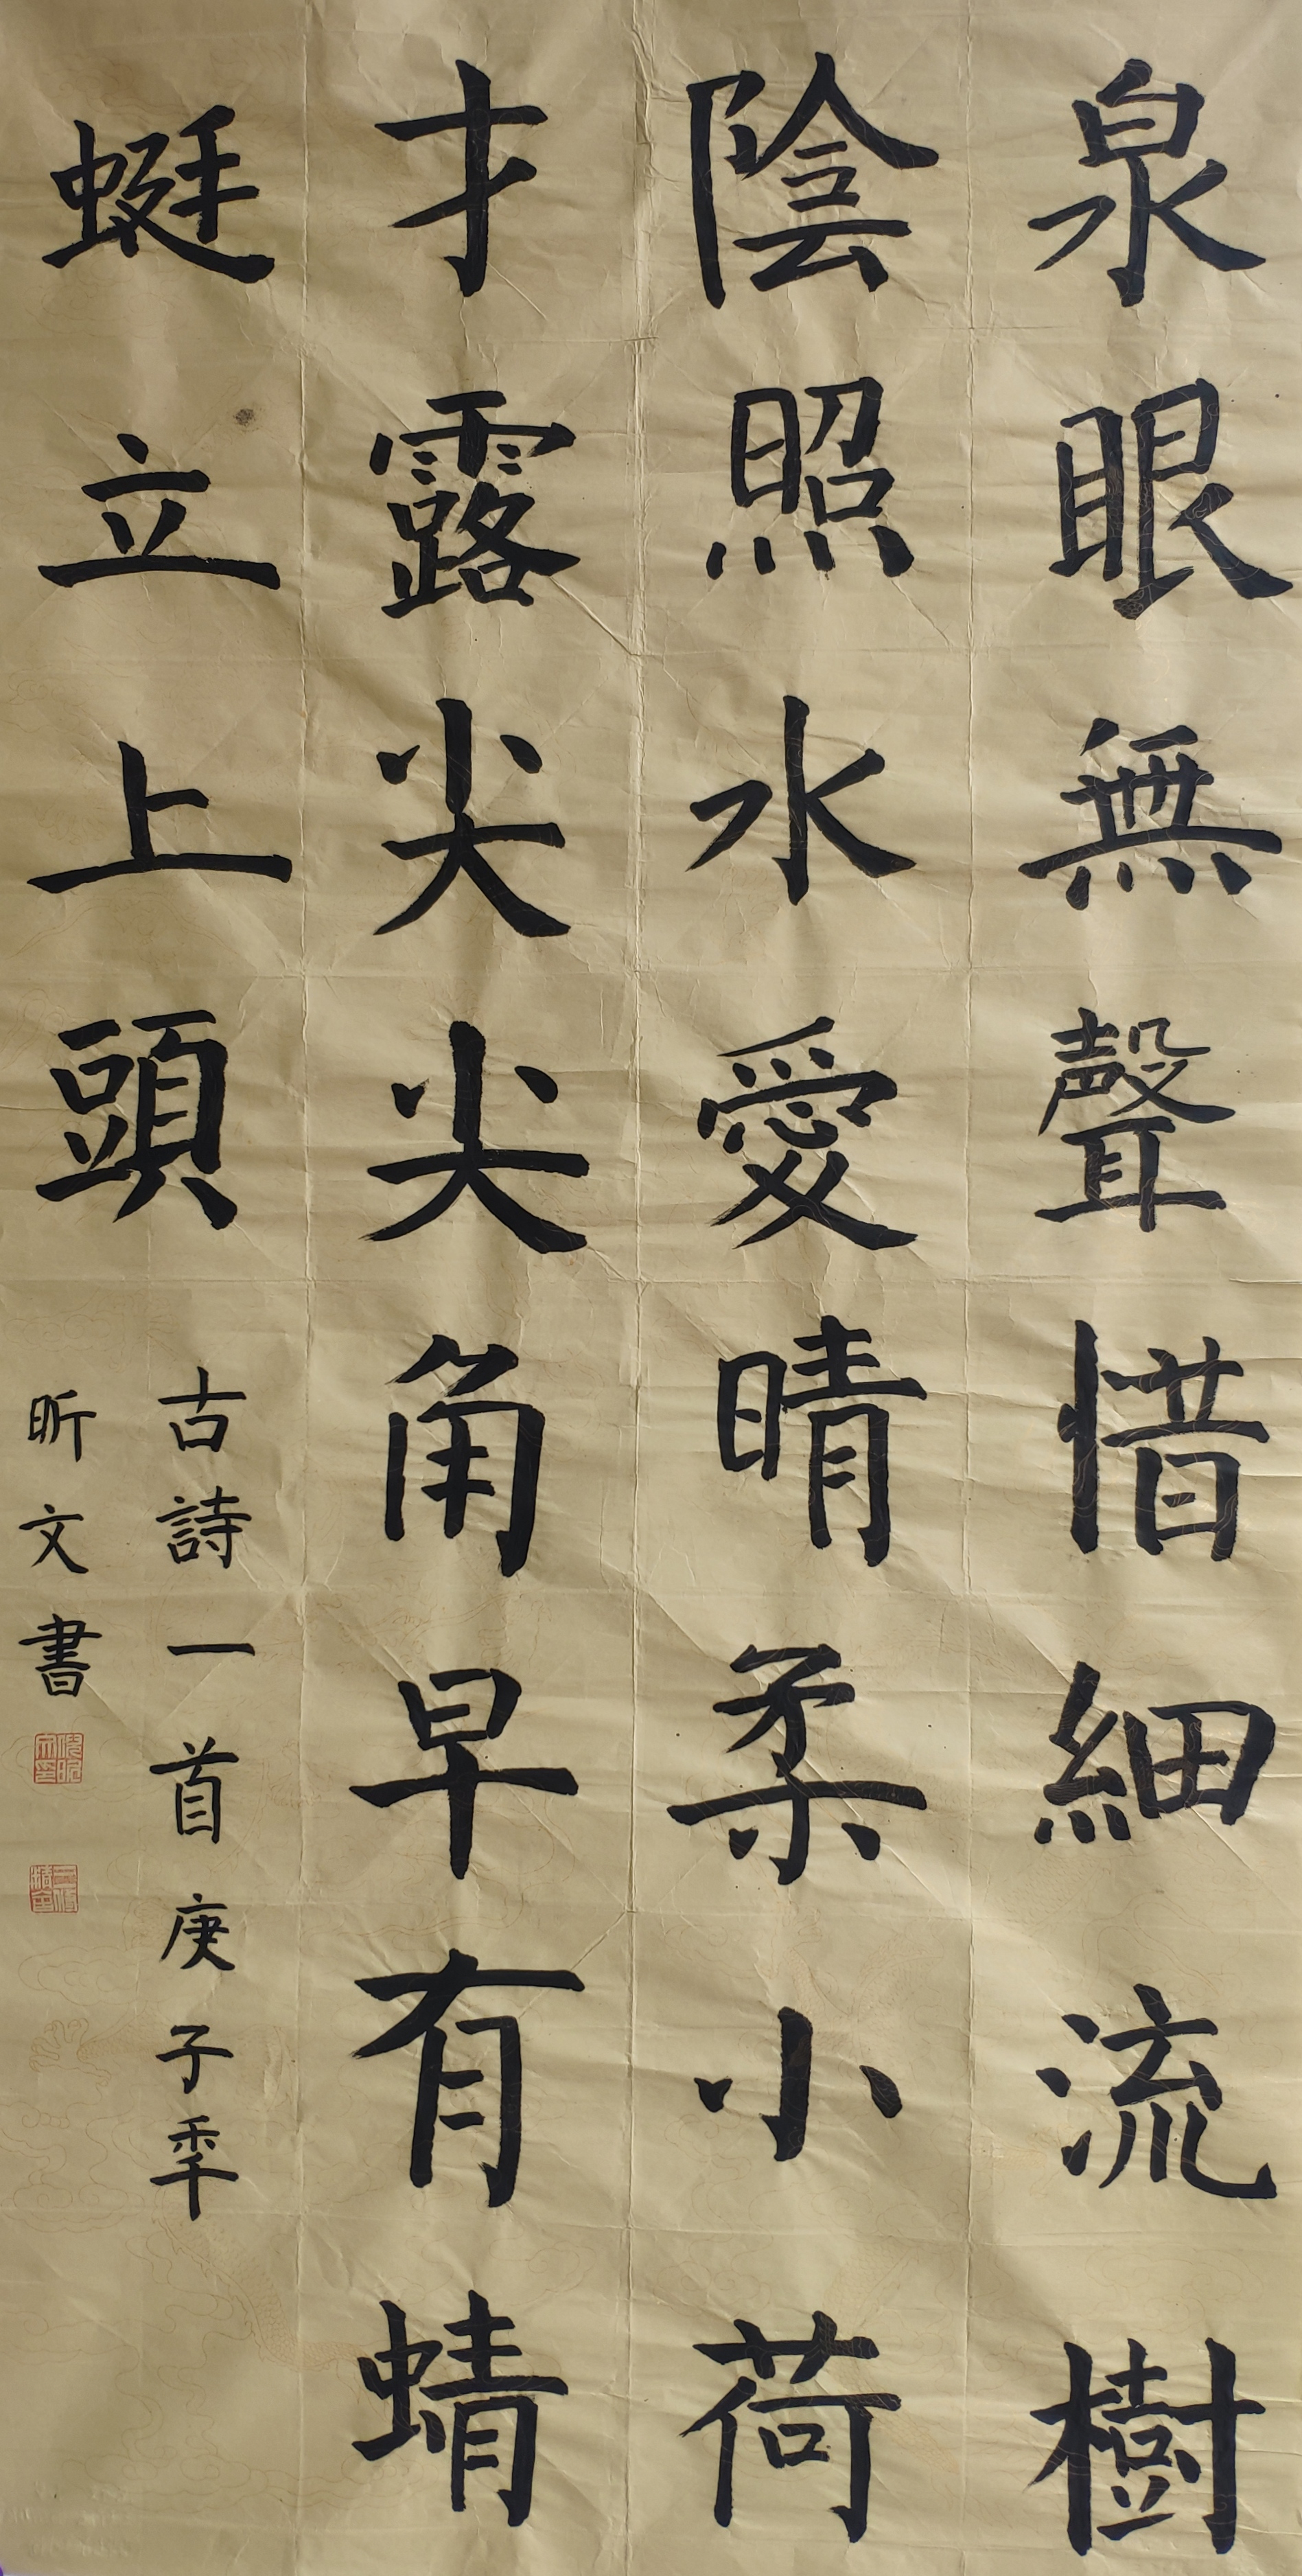 泉眼無聲惜細流樹
陰照水愛晴柔小荷
才露尖尖角早有蜻
蜓立上頭
古詩一首庚子季
昕文書